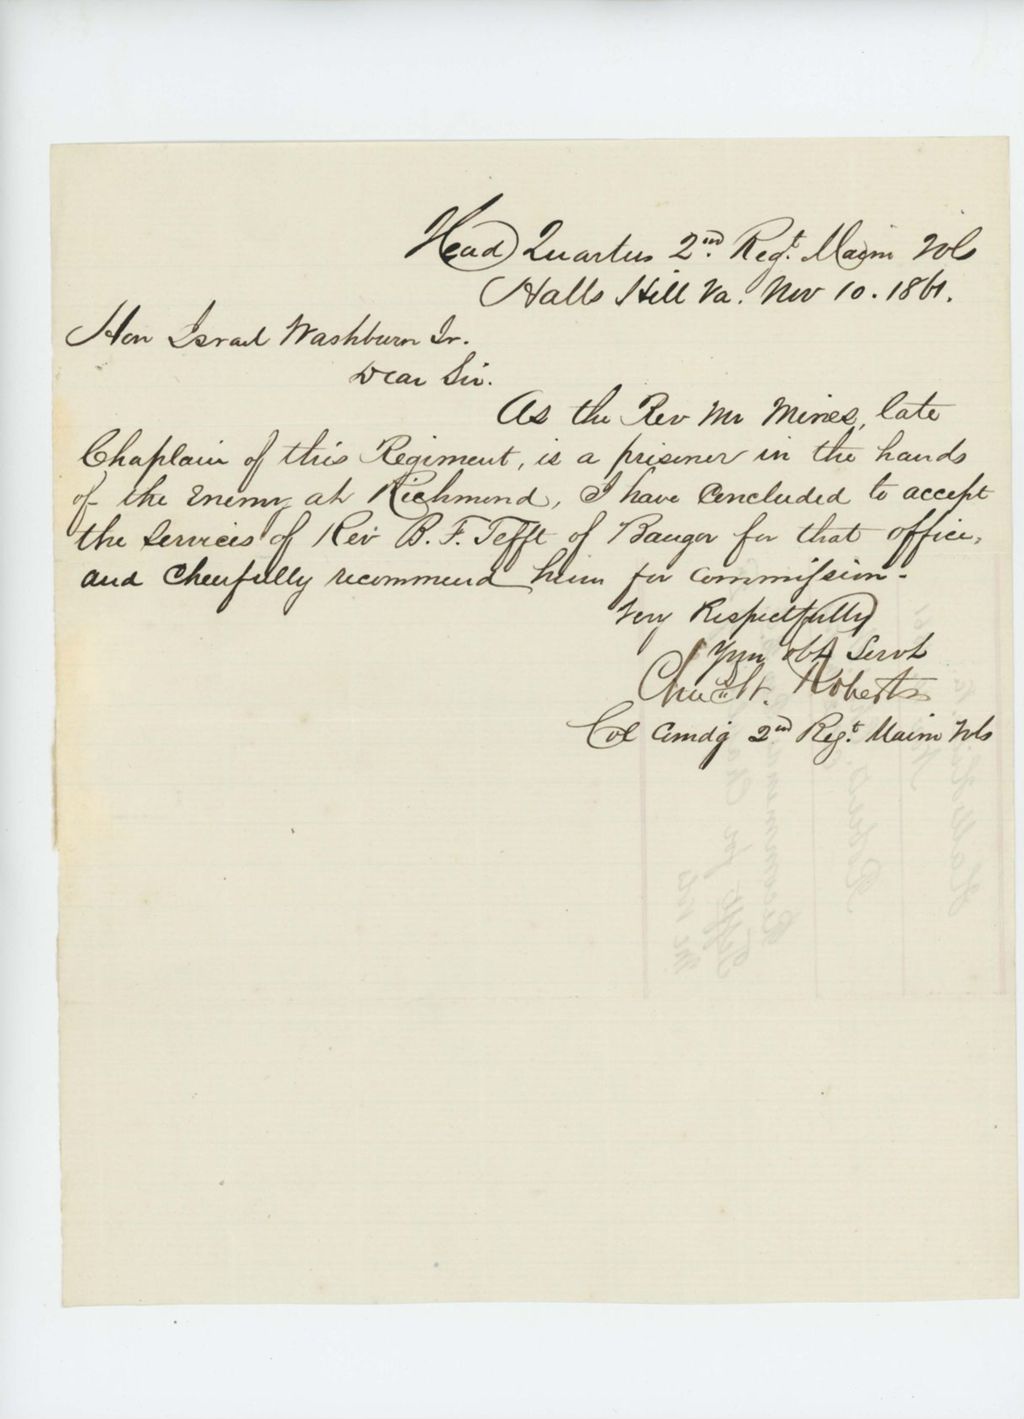 Head Quarters 2nd Regt. Maine Vols
Halls Hill Va. Nov 10. 1861.
Hon Israel Washburn Jr.
Dear Sir.
As the Rev Mr Mines, late
Chaplain of this Regiment, is a prisoner in the hands
of the Enemy at Richmond, I have Concluded to accept
the Services of Rev B. F. Tefft of Bangor for that office,
and Cheerfully recommend him for commission -
Very Respectfully
Your obt Servt
Chas W. Roberts
Col Comdg 2nd Regt Maine Vols